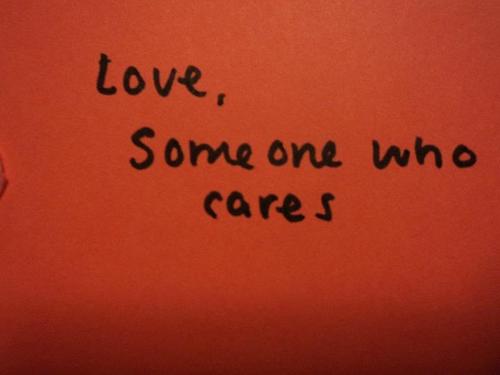 Love,
Someone who
cares